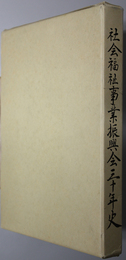 社会福祉事業振興会三十年史